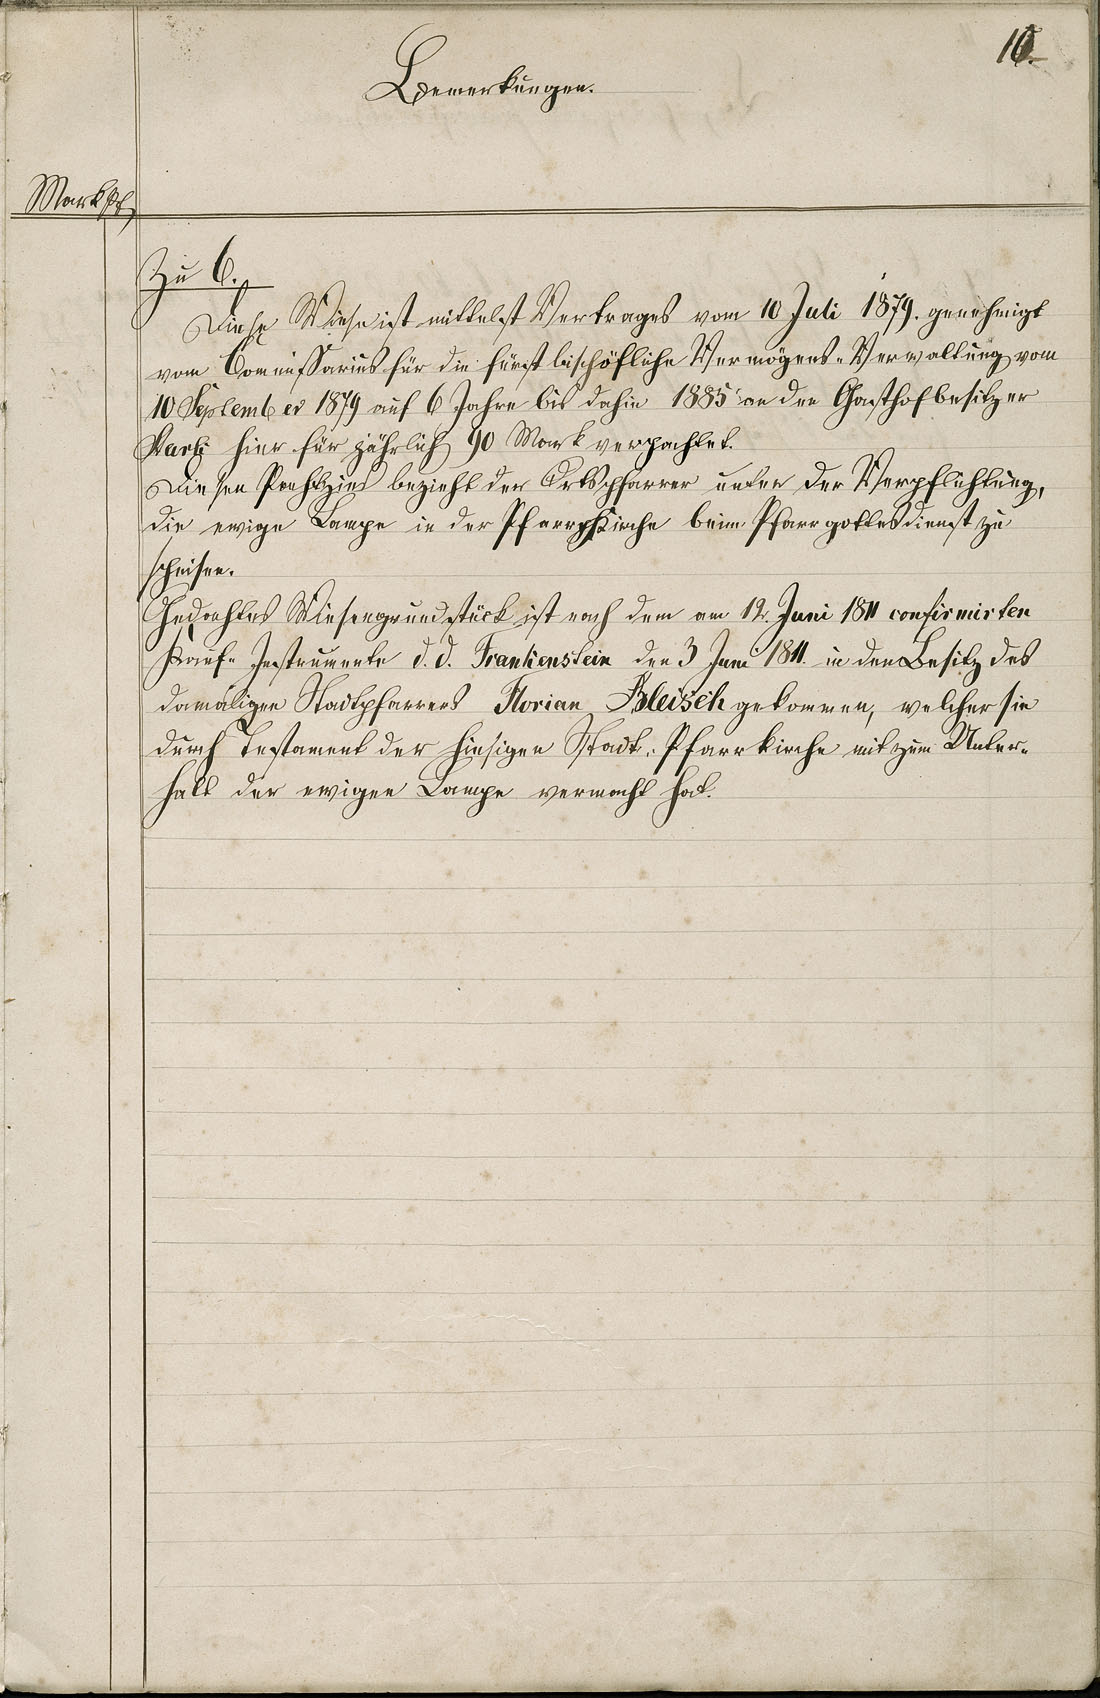 10.
Bemerkungen.
Mark Pf
Zu 6.
Diese Wiese ist mittelst Vertrages vom 10 Juli 1879. genehmigt
vom Commissarius für die fürstbischöfliche Vermögens-Verwaltung vom
10 September 1879 auf 6 Jahre bis dahin 1885 an den Gasthofbesitzer
hier für jährlich 90 Mark verpachtet.
Diesen Pachtzins bezieht der Ortspfarrer unter der Verpflichtung,
die ewige Lampe in der Pfarrkirche beim Pfarrgottesdienst zu
speisen.
Gedachtes Wiesengrundstück ist nach dem am 12. Juni 1811 confirmirten
Kauf-Instrumente d. d. Frankenstein den 3 Juni 1811. in den Besitz des
damaligen Stadtpfarrers Florian Bleisch gekommen, welcher sie
durch Testament der hiesigen Stadt-Pfarrkirche mit zum Unter-
halt der ewigen Lampe vermacht hat.